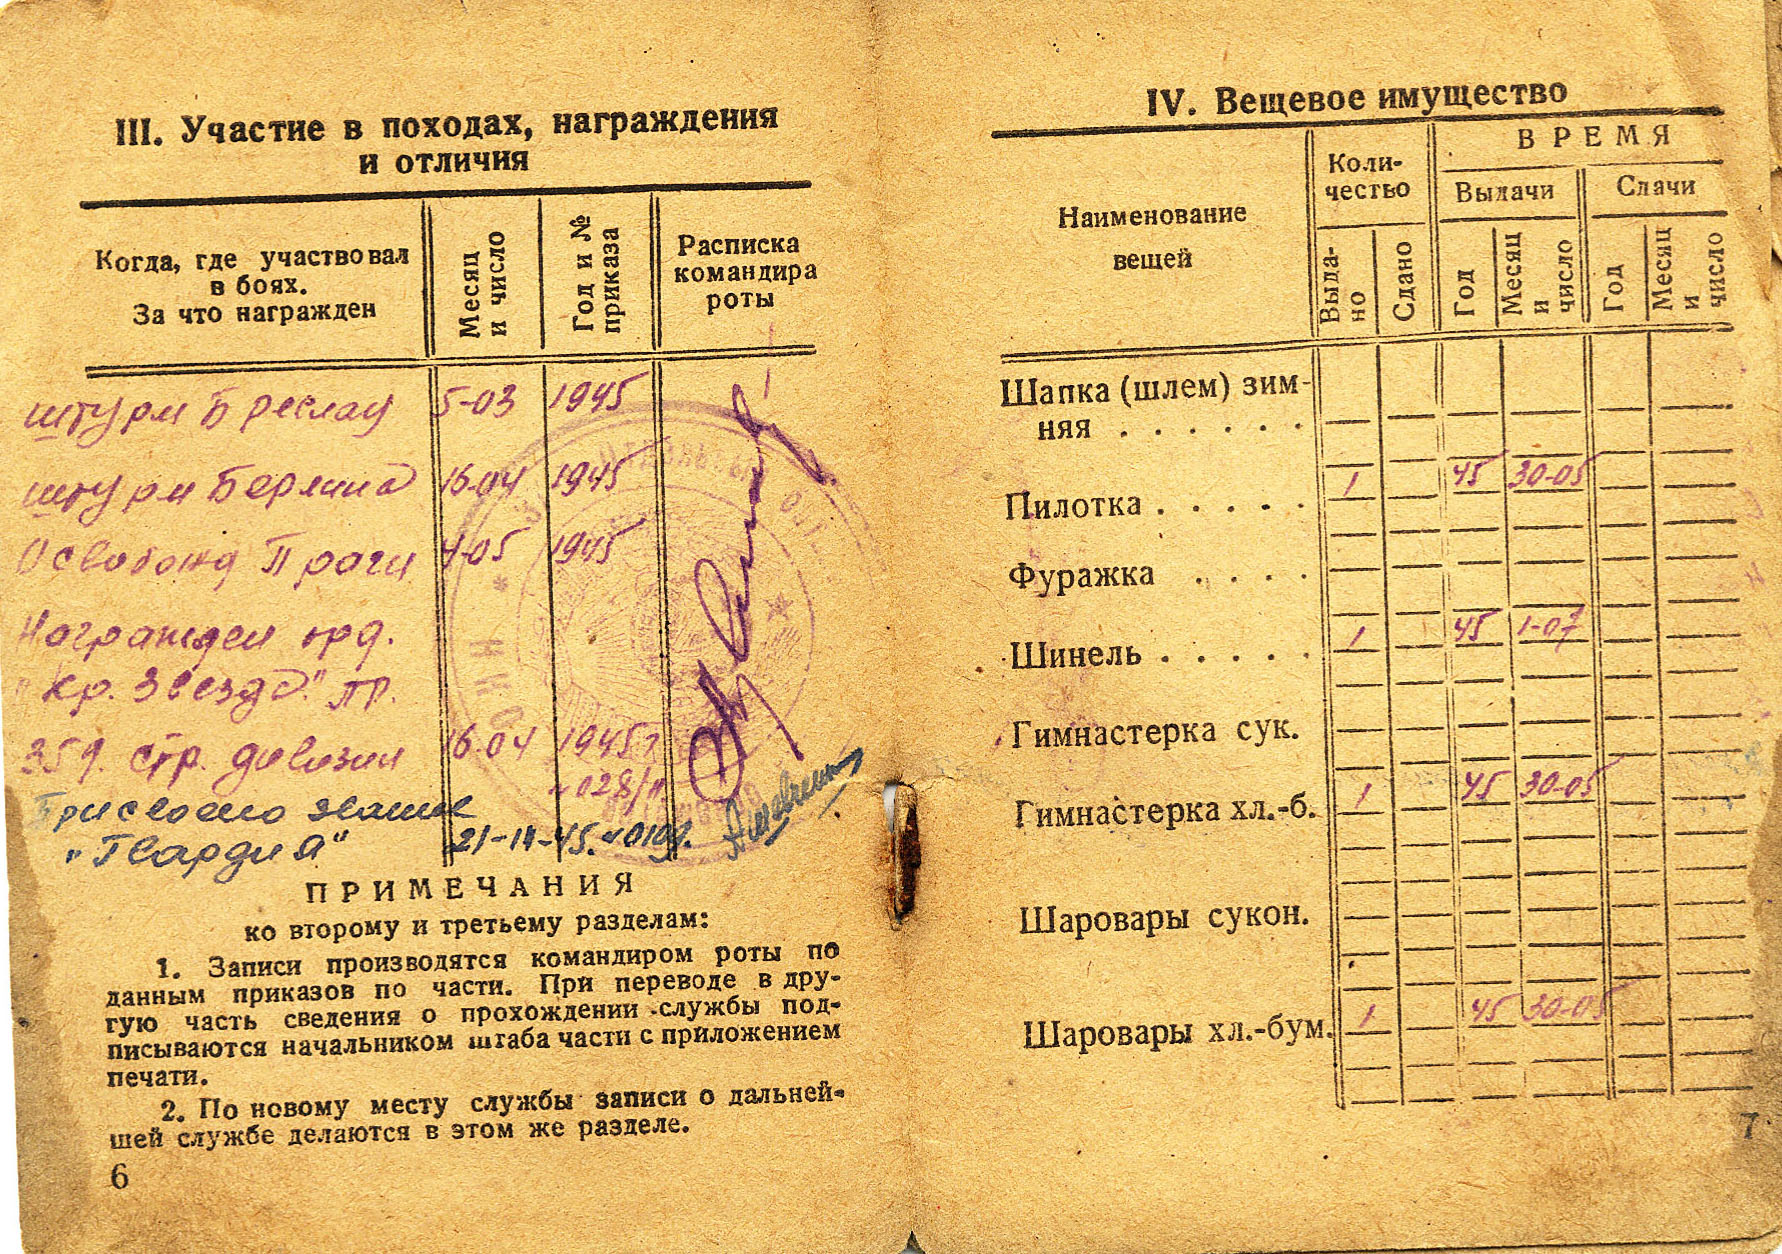 III. Участие в походах, награждения
и отличия
Когда, где участвовал
в боях.
За что награжден
Месяц
и число
Год и №
приказа
Расписка
командира
роты
штурм Бреслау 5-03 1945
штурм Берлина 16-04 1945
Освобожд Праги 4-05 1945
Награжден орд.
"Кр. Звезда" пр.
359. стр. дивизии 16-04 1945г
028/н
Присвоено звание
"Гвардия" 21-11-45.
ПРИМЕЧАНИЯ
ко второму и третьему разделам:
1. Записи производятся командиром роты по
данным приказов по части. При переводе в дру-
гую часть сведения о прохождении службы под-
писываются начальником штаба части с приложением
печати.
2. По новому месту службы записи о дальней-
шей службе делаются в этом же разделе.
6
IV. Вещевое имущество
Наименование
вещей
Коли-
чество
ВРЕМЯ
Выдачи
Сдачи
Выда-
но
Сдано
Год
Месяц
и
число
Год
Месяц
и
число
Шапка (шлем) зим-
няя . . . . . .
Пилотка . . . . . 1 45 30-05
Фуражка . . . .
Шинель . . . . . 1 45 1-07
Гимнастерка сук.
Гимнастерка хл.-б. 1 45 30-05
Шаровары сукон.
Шаровары хл.-бум. 1 45 30-05
7